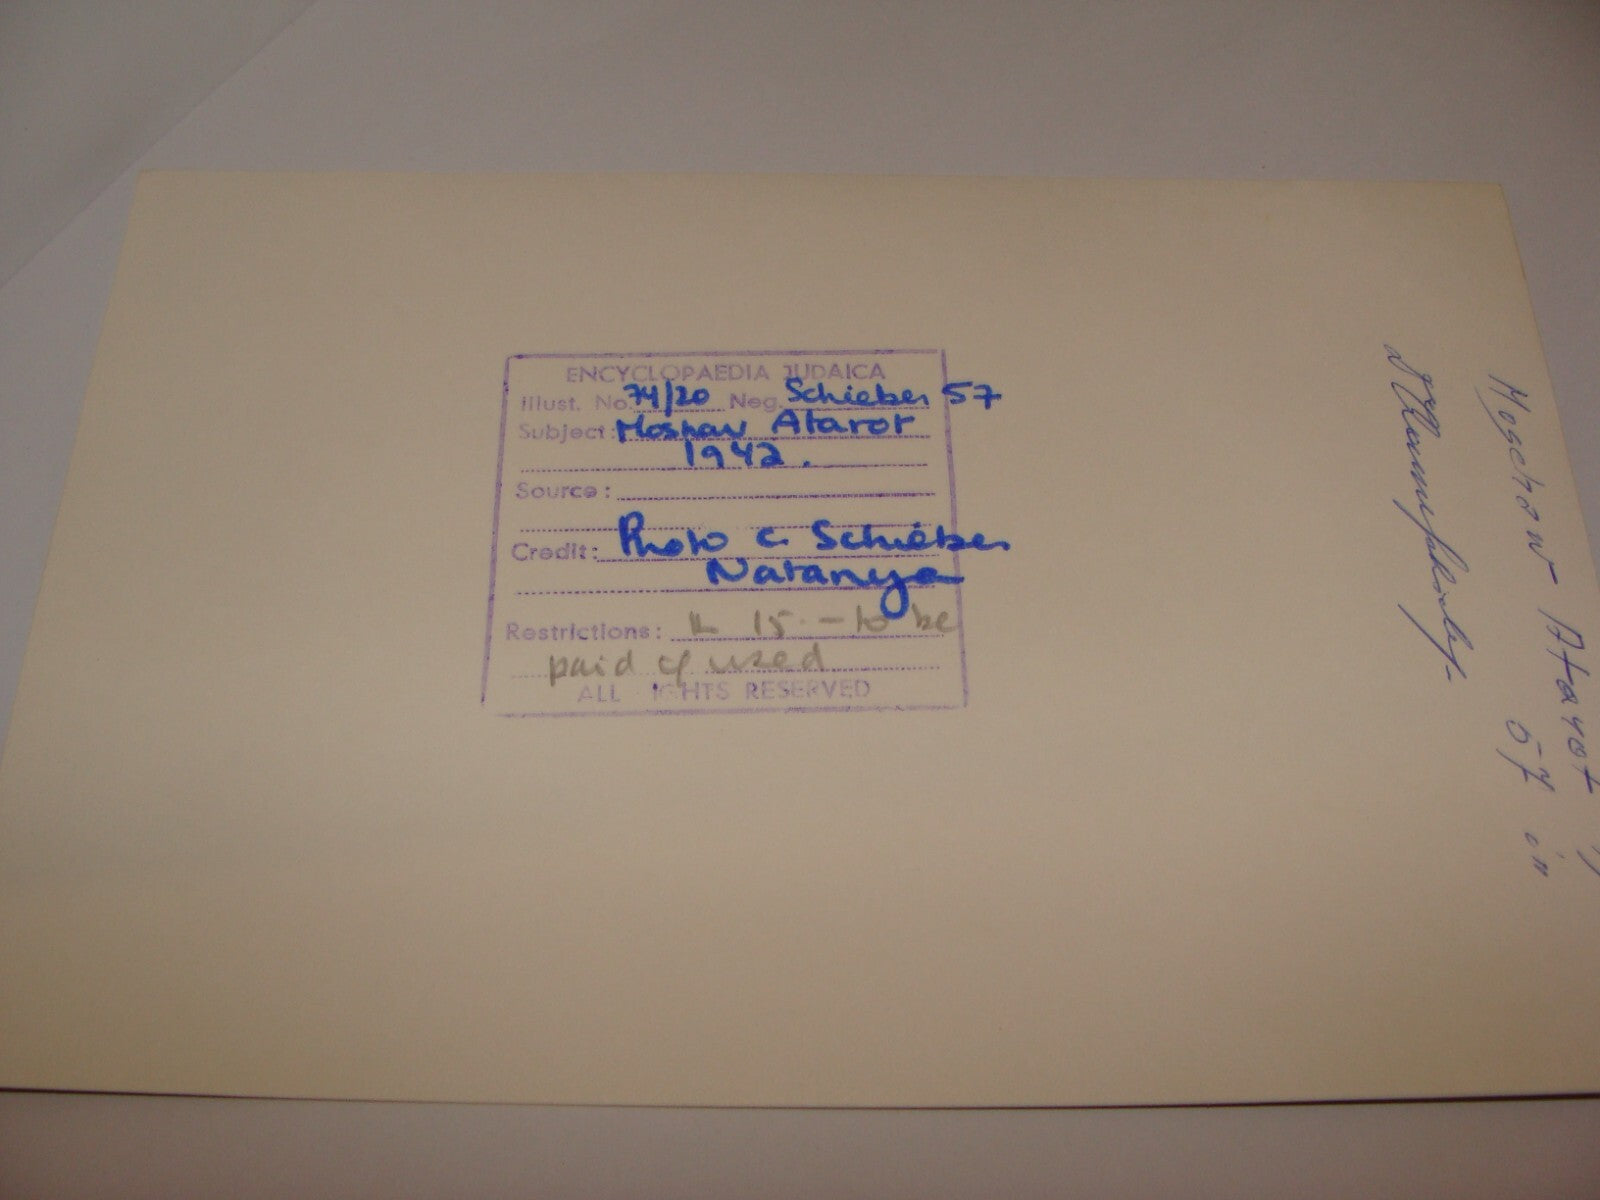 ENCYCLOPAEDIA JUDAICA
Illust. No. 74/20 Neg. Schieber 57
Subject: Moshav Atarot
1942.
Source:
Credit: Photo C. Schieber
Natanya
Restrictions: IL 15.- to be
paid if used
ALL RIGHTS RESERVED
Moschaw Atarot
57 in